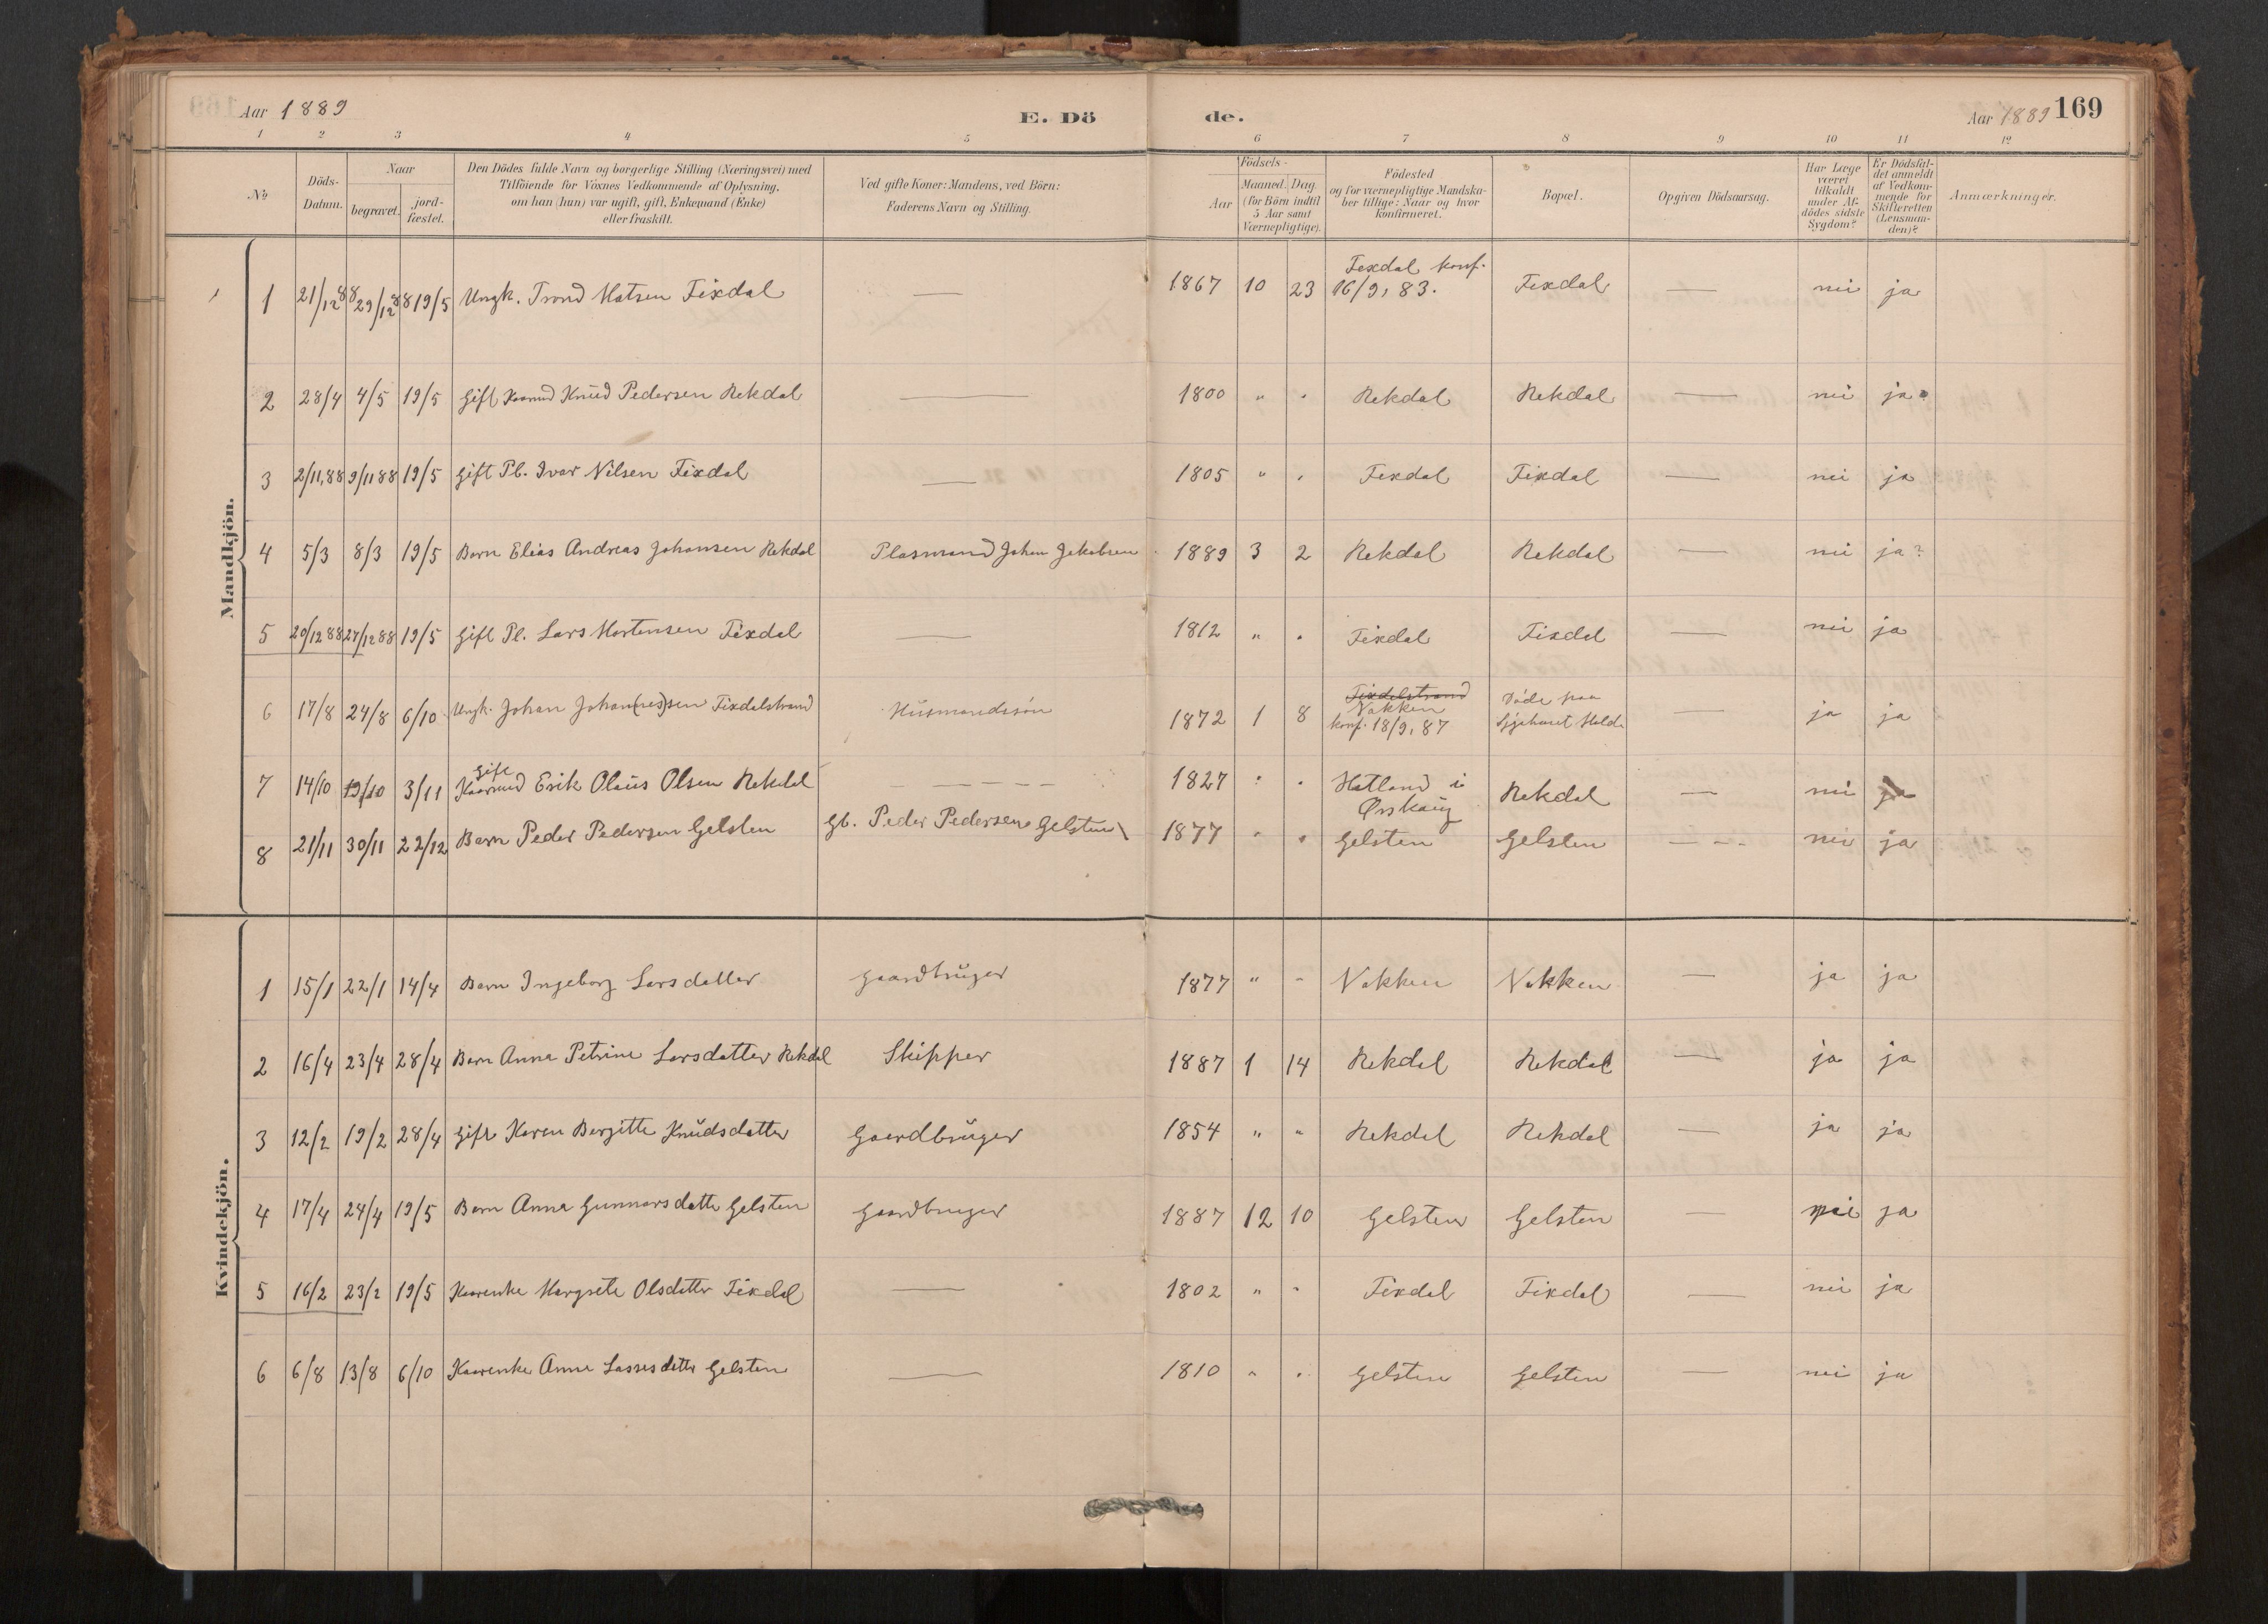 Aar 1889
E. Dö
de.
Aar 1889 169
1 2 3 4 5 6 7 8 9 10 11 12
№
Döds-
Datum.
Naar
begravet.
jord-
fæstet.
Den Dödes fulde Navn og borgerlige Stilling (Næringsvei) med
Tilföiende for Voxnes Vedkommende af Oplysning,
om han (hun) var ugift, gift, Enkemand (Enke)
eller fraskilt.
Ved gifte Koner: Mandens, ved Börn:
Faderens Navn og Stilling.
Födsels-
Aar
Maaned. Dag.
(for Börn indtil
5 Aar samt
Værnepligtige).
Födested
og for værnepligtige Mandska-
ber tillige: Naar og hvor
konfirmeret.
Bopæl.
Opgiven Dödsaarsag.
Har Læge
været
tilkaldt
under Af-
dödes sidste
Sygdom?
Er Dödsfal-
det anmeldt
af Vedkom-
mende for
Skifteretten
(Lensman-
den)?
Anmærkninger.
Mandkjön.
1 21/12 88 29/12 88 19/5 Ungk. Trond Matsen Fixdal — 1867 10 23 Fixdal konf. 16/9, 83. Fixdal — nei ja
2 28/4 4/5 19/5 Gift Kaarmd Knud Pedersen Rekdal — 1800 " " Rekdal Rekdal — nei ja
3 2/11,88 9/11 88 19/5 Gift Pl. Ivar Nilsen Fixdal — 1805 " " Fixdal Fixdal — nei ja
4 5/3 8/3 19/5 Barn Elias Andreas Johansen Rekdal Plasmand Johan Jakobsen 1889 3 2 Rekdal Rekdal — nei ja?
5 20/12 88 27/12 88 19/5 Gift Pl. Lars Mortensen Fixdal — 1812 " " Fixdal Fixdal — nei ja
6 17/8 24/8 6/10 Ungk. Johan Johan(nes)sen Fixdalstrand Husmandssön 1872 1 8 Fixdalstrand Nakken konf. 18/9, 87 Döde paa Sygehuset Molde — ja ja
7 14/10 19/10 3/11 Gift Kaarmd Erik Olaus Olsen Rekdal — — — — 1827 " " Hatland i Ørskaug Rekdal — nei ja
8 21/11 30/11 22/12 Barn Peder Pedersen Gelsten Gb. Peder Pedersen Gelsten 1877 " " Gelsten Gelsten — - - nei ja
Kvindekjön.
1 15/1 22/1 14/4 Barn Ingeborg Larsdatter Gaardbruger 1877 " " Nakken Nakken — ja ja
2 16/4 23/4 28/4 Barn Anna Petrine Larsdatter Rekdal Skipper 1887 1 14 Rekdal Rekdal — ja ja
3 12/2 19/2 28/4 Gift Karen Bergitte Knudsdatter Gaardbruger 1854 " " Rekdal Rekdal — ja ja
4 17/4 24/4 19/5 Barn Anna Gunnarsdatter Gelsten Gaardbruger 1887 12 10 Gelsten Gelsten — nei ja
5 16/2 23/2 19/5 Kaarenke Margrete Olsdatter Fixdal — 1802 " " Fixdal Fixdal — nei ja
6 6/8 13/8 6/10 Kaarenke Anne Lassesdatter Gelsten — 1810 " " Gelsten Gelsten — nei ja